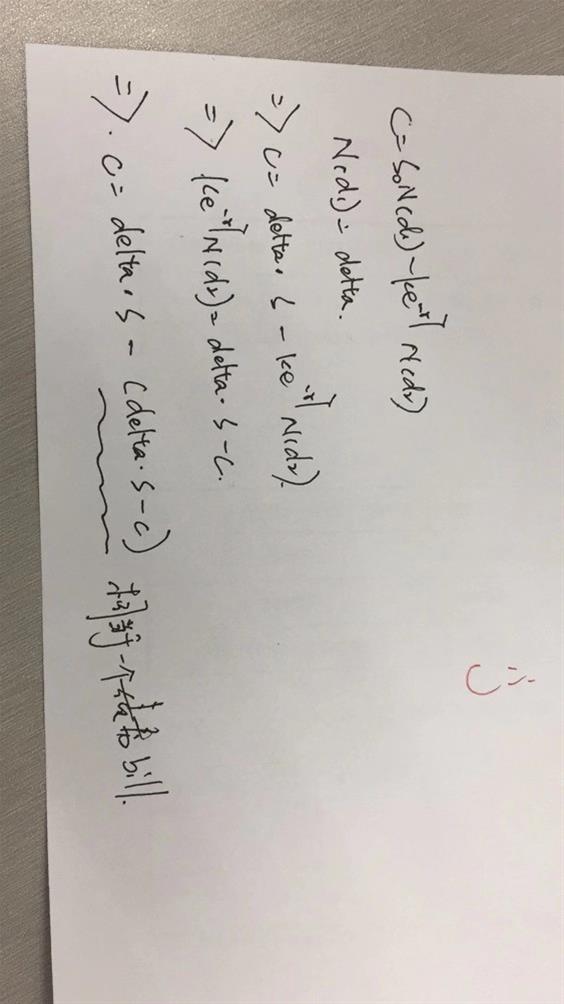 C = S₀N(d₁) - ke⁻ʳᵀ N(d₂)
N(d₁) = delta.
=> C = delta · S - ke⁻ʳᵀ N(d₂).
=> ke⁻ʳᵀ N(d₂) = delta · S - C.
=> . C = delta · S - (delta · S - C) 相当于一个 bill.